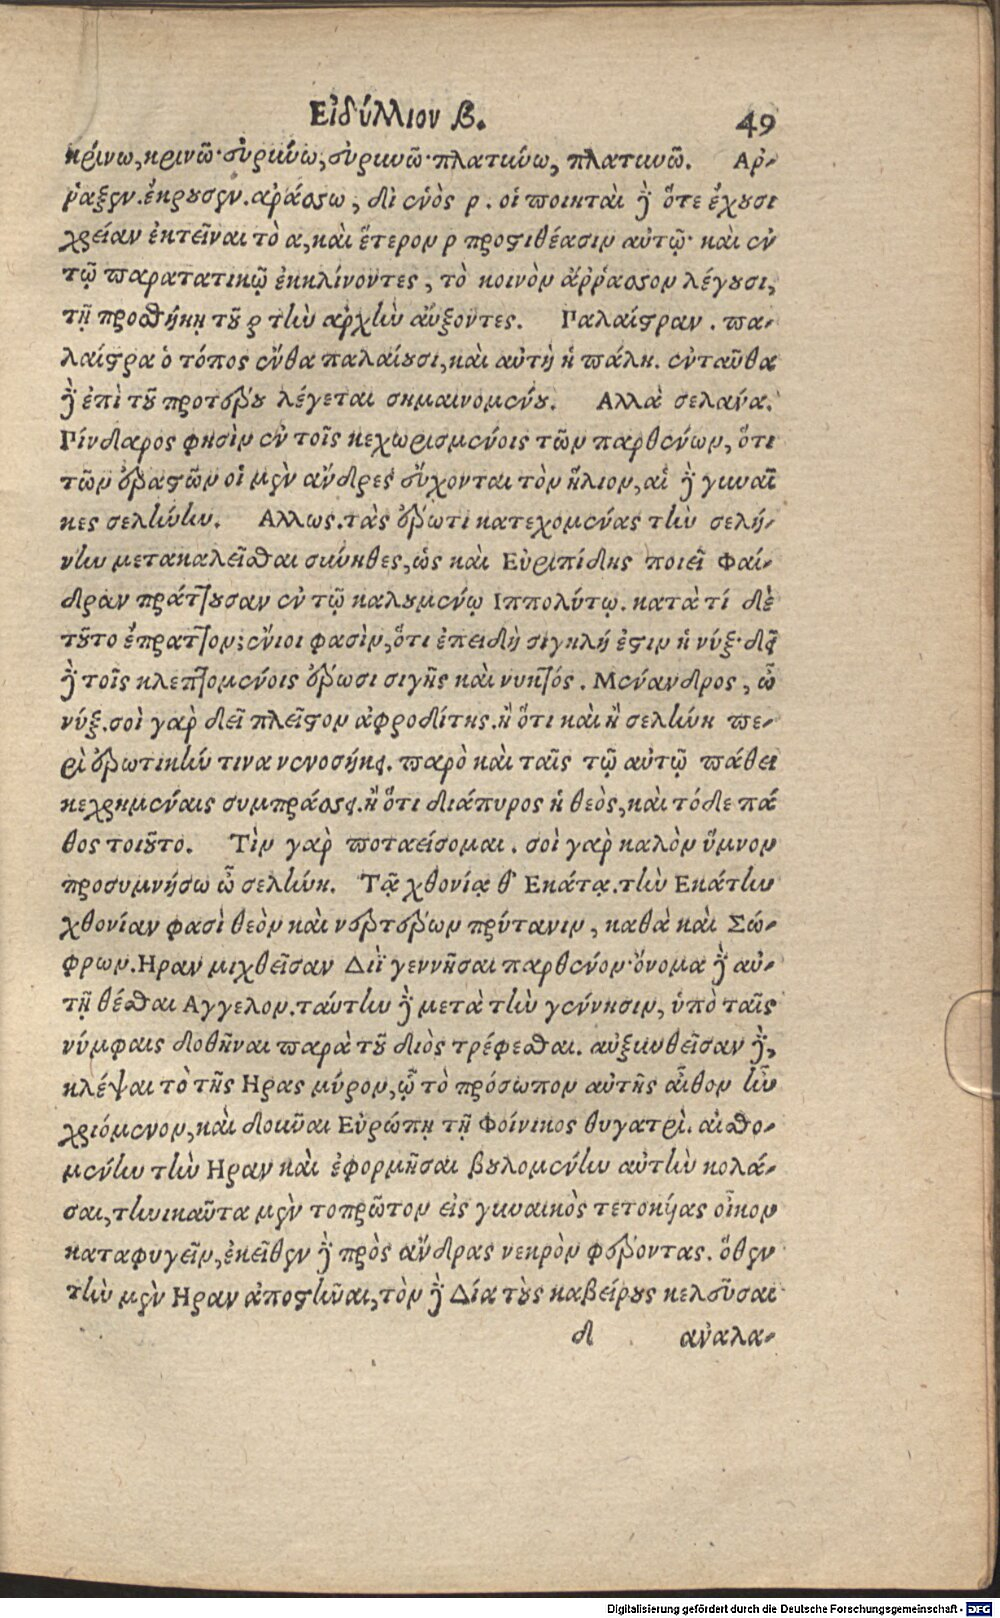 Εἰδύλλιον β. 49
κρίνω, κρινῶ· συρκύνω, συρκυνῶ· πλατκύνω, πλατκυνῶ. Αρ-
ῥαξεν. ἔκρουσεν. αράσσω, δι ἑνὸς ρ. οἱ ποιηταὶ δὲ ὅτε ἔχουσι
χρείαν ἐκτεῖναι τὸ α, καὶ ἕτερον ρ προστιθέασιν αὐτῷ· καὶ ἐν
τῷ παρατατικῷ ἐκκλίνοντες, τὸ κοινὸν ἄῤῥασσον λέγουσι,
τῇ προσθήκῃ τοῦ ρ τὴν αρχὴν αὔξοντες. Παλαίστραν. πα-
λαίστρα ὁ τόπος ἔνθα παλαίουσι, καὶ αὐτὴ ἡ πάλη. ἐνταῦθα
δὲ ἐπὶ τοῦ προτέρου λέγεται σημαινομένου. Αλλὰ σελάνα.
Πίνδαρος φησὶν ἐν τοῖς κεχωρισμένοις τῶν παρθένων, ὅτι
τῶν ἐραστῶν οἱ μὲν ἄνδρες εὔχονται τὸν ἥλιον, αἱ δὲ γυναῖ
κες σελήνην. Αλλως. τὰς ἔρωτι κατεχομένας τὴν σελή-
νην μετακαλεῖσθαι σύνηθες, ὡς καὶ Εὐριπίδης ποιεῖ Φαί-
δραν πράττουσαν ἐν τῷ καλουμένῳ Ιππολύτῳ. κατὰ τί δὲ
τοῦτο ἔπραττον; ἔνιοι φασὶν, ὅτι ἐπειδὴ σιγηλή ἐστιν ἡ νύξ· δεῖ
δὲ τοῖς κλεπτομένοις ἔρωσι σιγῆς καὶ νυκτός. Μένανδρος, ὦ
νύξ. σοὶ γαρ δεῖ πλεῖστον ἀφροδίτης. ἢ ὅτι καὶ ἡ σελήνη πε-
ρὶ ἐρωτικήν τινα νενοσήκει. παρὸ καὶ ταῖς τῷ αὐτῷ πάθει
κεχρημέναις συμπράσσει. ἢ ὅτι διάπυρος ἡ θεὸς, καὶ τόδε πά
θος τοιοῦτο. Τὶν γαρ ποταείσομαι. σοὶ γαρ καλὸν ὕμνον
προσυμνήσω ὦ σελήνη. Τᾷ χθονίᾳ θ' Εκάτᾳ. τὴν Εκάτην
χθονίαν φασὶ θεὸν καὶ νερτέρων πρύτανιν, καθὰ καὶ Σώ-
φρων. Ηραν μιχθεῖσαν Διῒ γεννῆσαι παρθένον· ὄνομα δὲ αὐ-
τῇ θέσθαι Αγγελον. ταύτην δὲ μετὰ τὴν γέννησιν, ὑπὸ ταῖς
νύμφαις δοθῆναι παρὰ τοῦ διὸς τρέφεσθαι. αὐξυνθεῖσαν δὲ,
κλέψαι τὸ τῆς Ηρας μύρον, ᾧ τὸ πρόσωπον αὐτῆς αἶθον ἦν
χριόμενον, καὶ δοῦναι Εὐρώπῃ τῇ Φοίνικος θυγατρὶ. αἰσθο-
μένην τὴν Ηραν καὶ ἐφορμῆσαι βουλομένην αὐτὴν κολά-
σαι, τηνικαῦτα μὲν τοπρῶτον εἰς γυναικὸς τετοκήας οἶκον
καταφυγεῖν, ἐκεῖθεν δὲ πρὸς ἄνδρας νεκρὸν φέροντας. ὅθεν
τὴν μὲν Ηραν ἀποστῆναι, τὸν δὲ Δία τοὺς καβείρους κελεῦσαι
d ἀναλα-
Digitalisierung gefördert durch die Deutsche Forschungsgemeinschaft - DFG